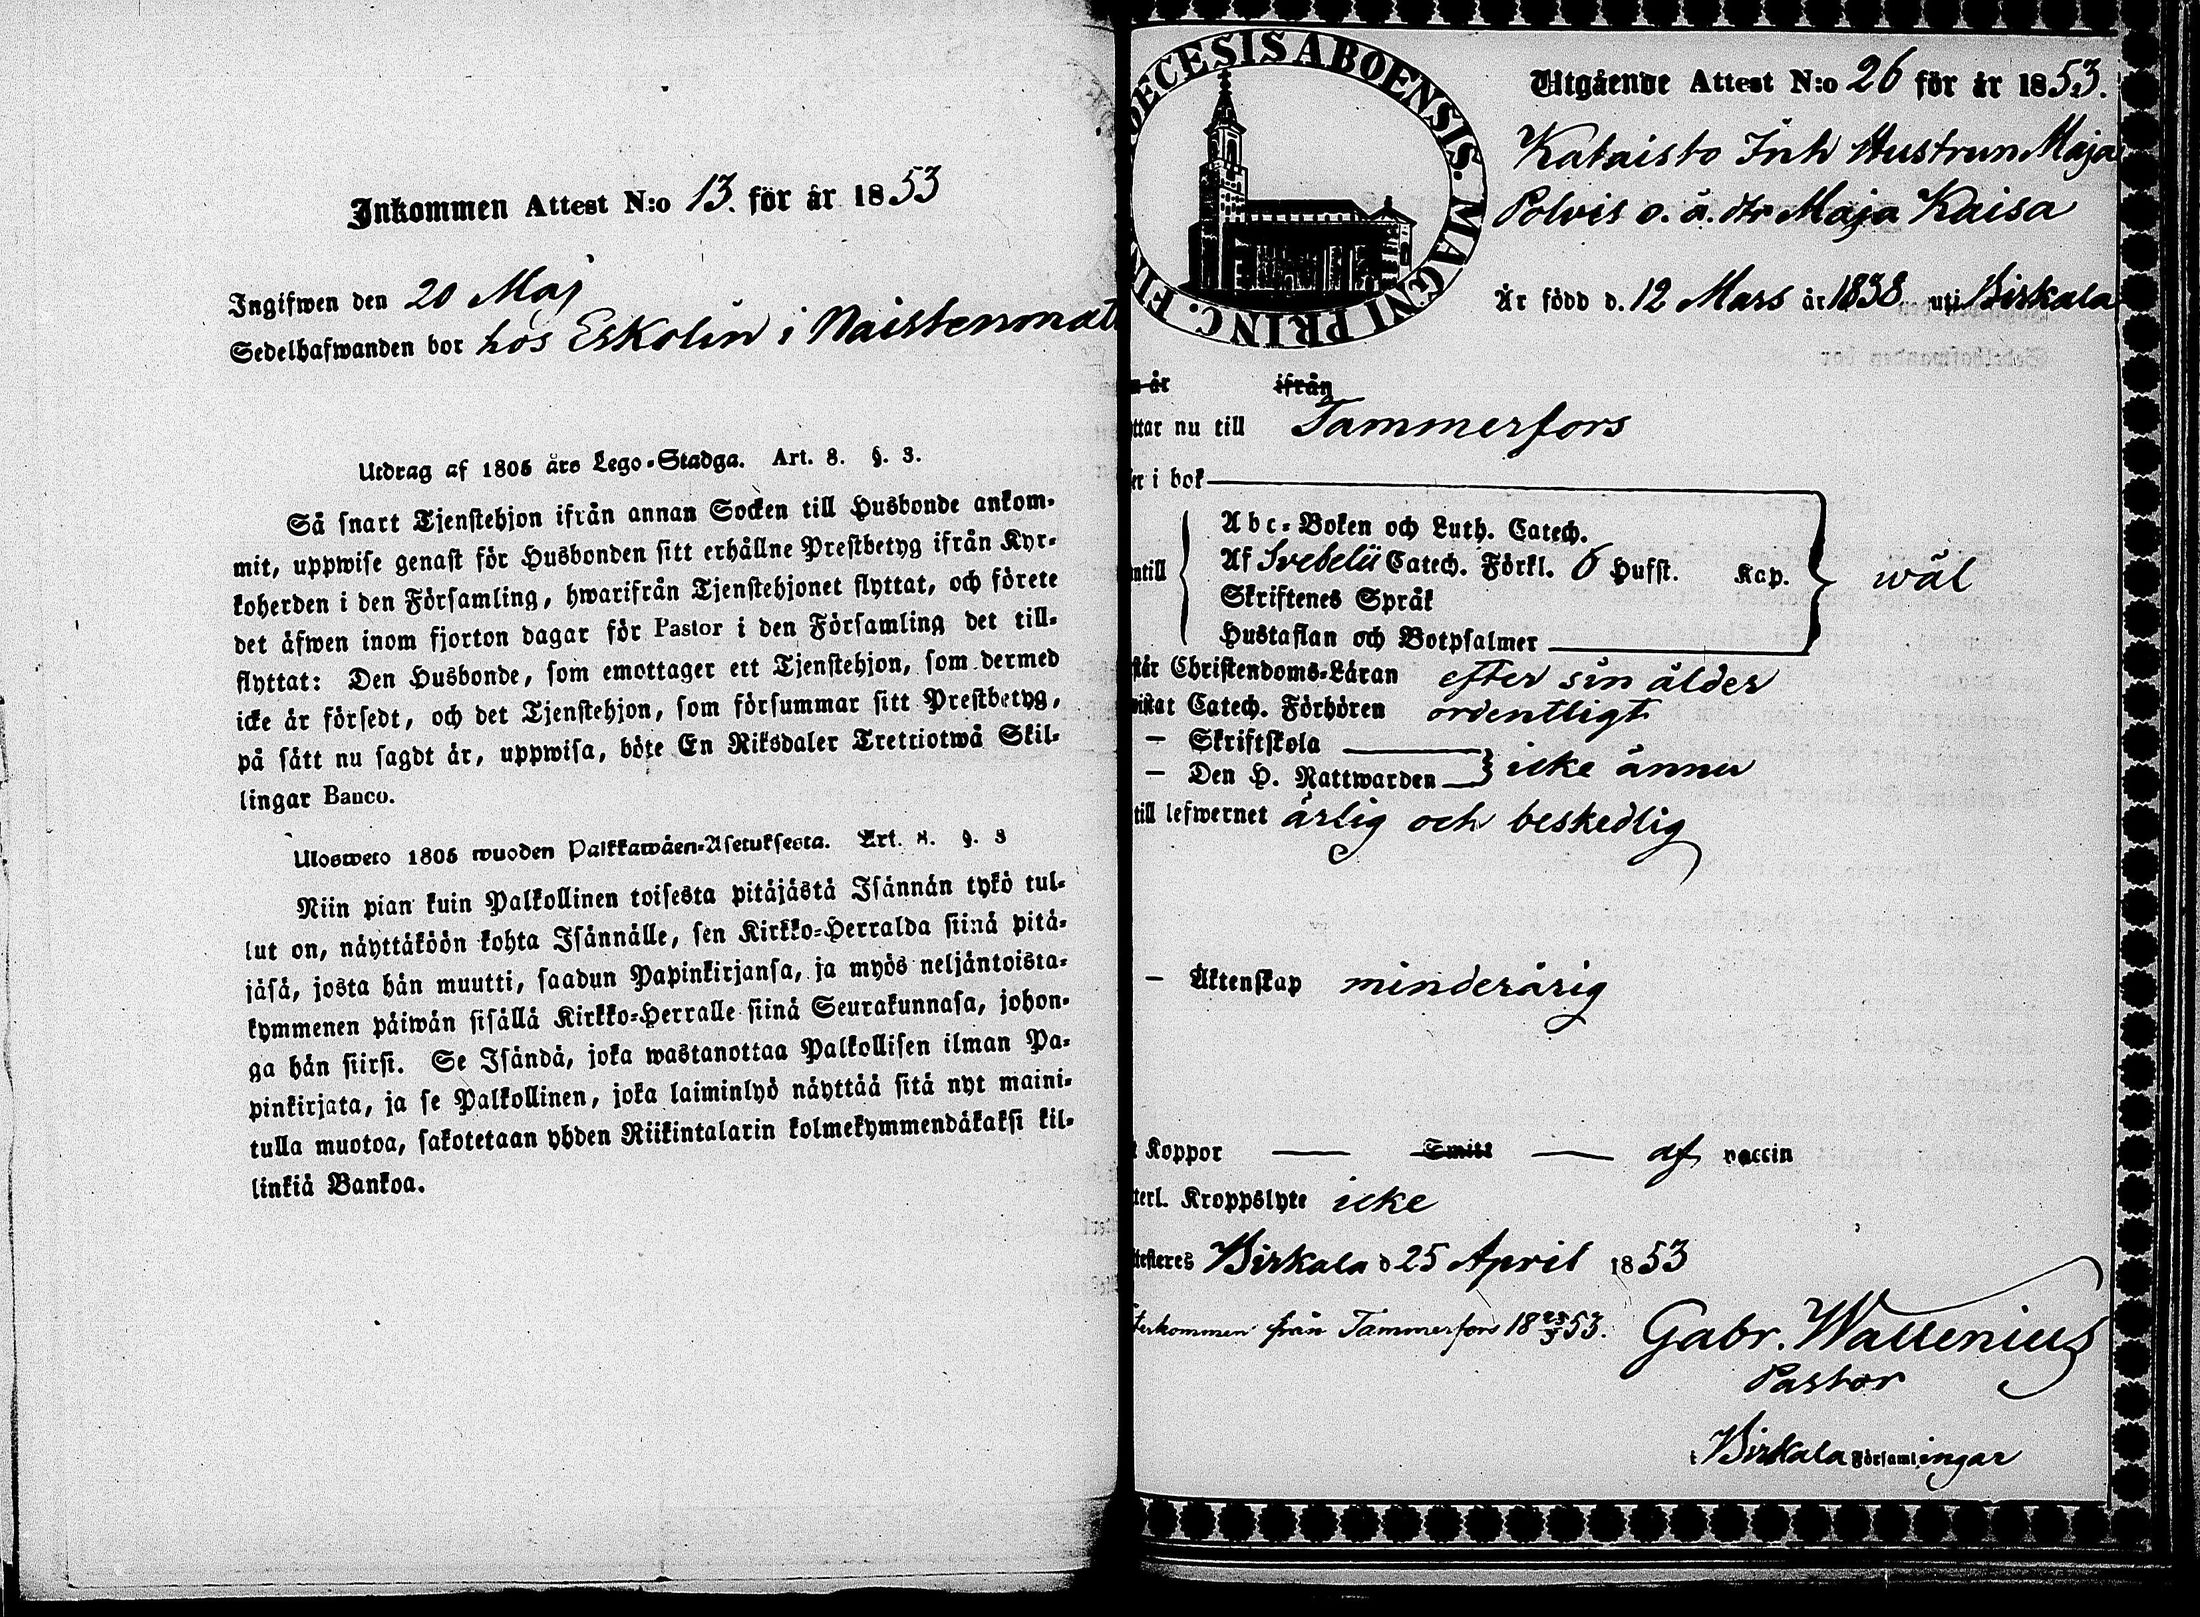 Inkommen Attest N:o 13. för år 1853
Ingifwen den 20 Maj
Sedelhafwanden bor hos Eskolin i Naistenmatt
Utdrag af 1805 års Lego-Stadga. Art. 8. §. 3.
Så snart Tjenstehjon ifrån annan Socken till Husbonde ankom-
mit, uppwise genast för Husbonden sitt erhållne Prestbetyg ifrån Kyr-
koherden i den Församling, hwarifrån Tjenstehjonet flyttat, och förete
det äfwen inom fjorton dagar för Pastor i den Församling det till-
flyttat: Den Husbonde, som emottager ett Tjenstehjon, som dermed
icke är försedt, och det Tjenstehjon, som försummar sitt Prestbetyg,
på sätt nu sagdt är, uppwisa, böte En Riksdaler Trettiotwå Skil-
lingar Banco.
Ulosweto 1805 wuoden Palkkawäen-Asetuksesta. Art. 8. §. 3
Niin pian kuin Palkollinen toisesta pitäjästä Isännän tykö tul-
lut on, näyttäköön kohta Isännälle, sen Kirkko-Herralda siinä pitä-
jäsä, josta hän muutti, saadun Papinkirjansa, ja myös neljäntoista-
kymmenen päiwän sisällä Kirkko-Herralle siinä Seurakunnasa, johon-
ga hän siirsi. Se Isändä, joka wastanottaa Palkollisen ilman Pa-
pinkirjata, ja se Palkollinen, joka laiminlyö näyttää sitä nyt maini-
tulla muotoa, sakotetaan yhden Riikintalarin kolmekymmendäkaksi kil-
linkiä Bankoa.
DECESIS ABOENSIS. MAGNI PRINC. FIN
Utgående Attest N:o 26 för år 1853.
Kataisto Inh Hustrun Maja
Polvis o. ä. dtr Maja Kaisa
Är född d. 12 Mars år 1838 uti Birkala
n år ifrån
ttar nu till Tammerfors
er i bok
ntill
Abc-Boken och Luth. Catech.
Af Svebelii Catech. Förkl. 6 Hufst. Kap. wäl
Skriftenes Språk
Hustaflan och Botpsalmer
står Christendoms-Läran efter sin ålder
vistat Catech. Förhören ordentligt
— Skriftskola
— Den H. Nattwarden icke ännu
till lefwernet ärlig och beskedlig
— Äktenskap minderårig
t Koppor — Smitt — af vaccin
terl. Kroppslyte icke
ttesteres Birkala d 25 April 1853
terkommen från Tammerfors 18 23/5 53.
Gabr. Wallenius
Pastor
i Birkala Församlingar